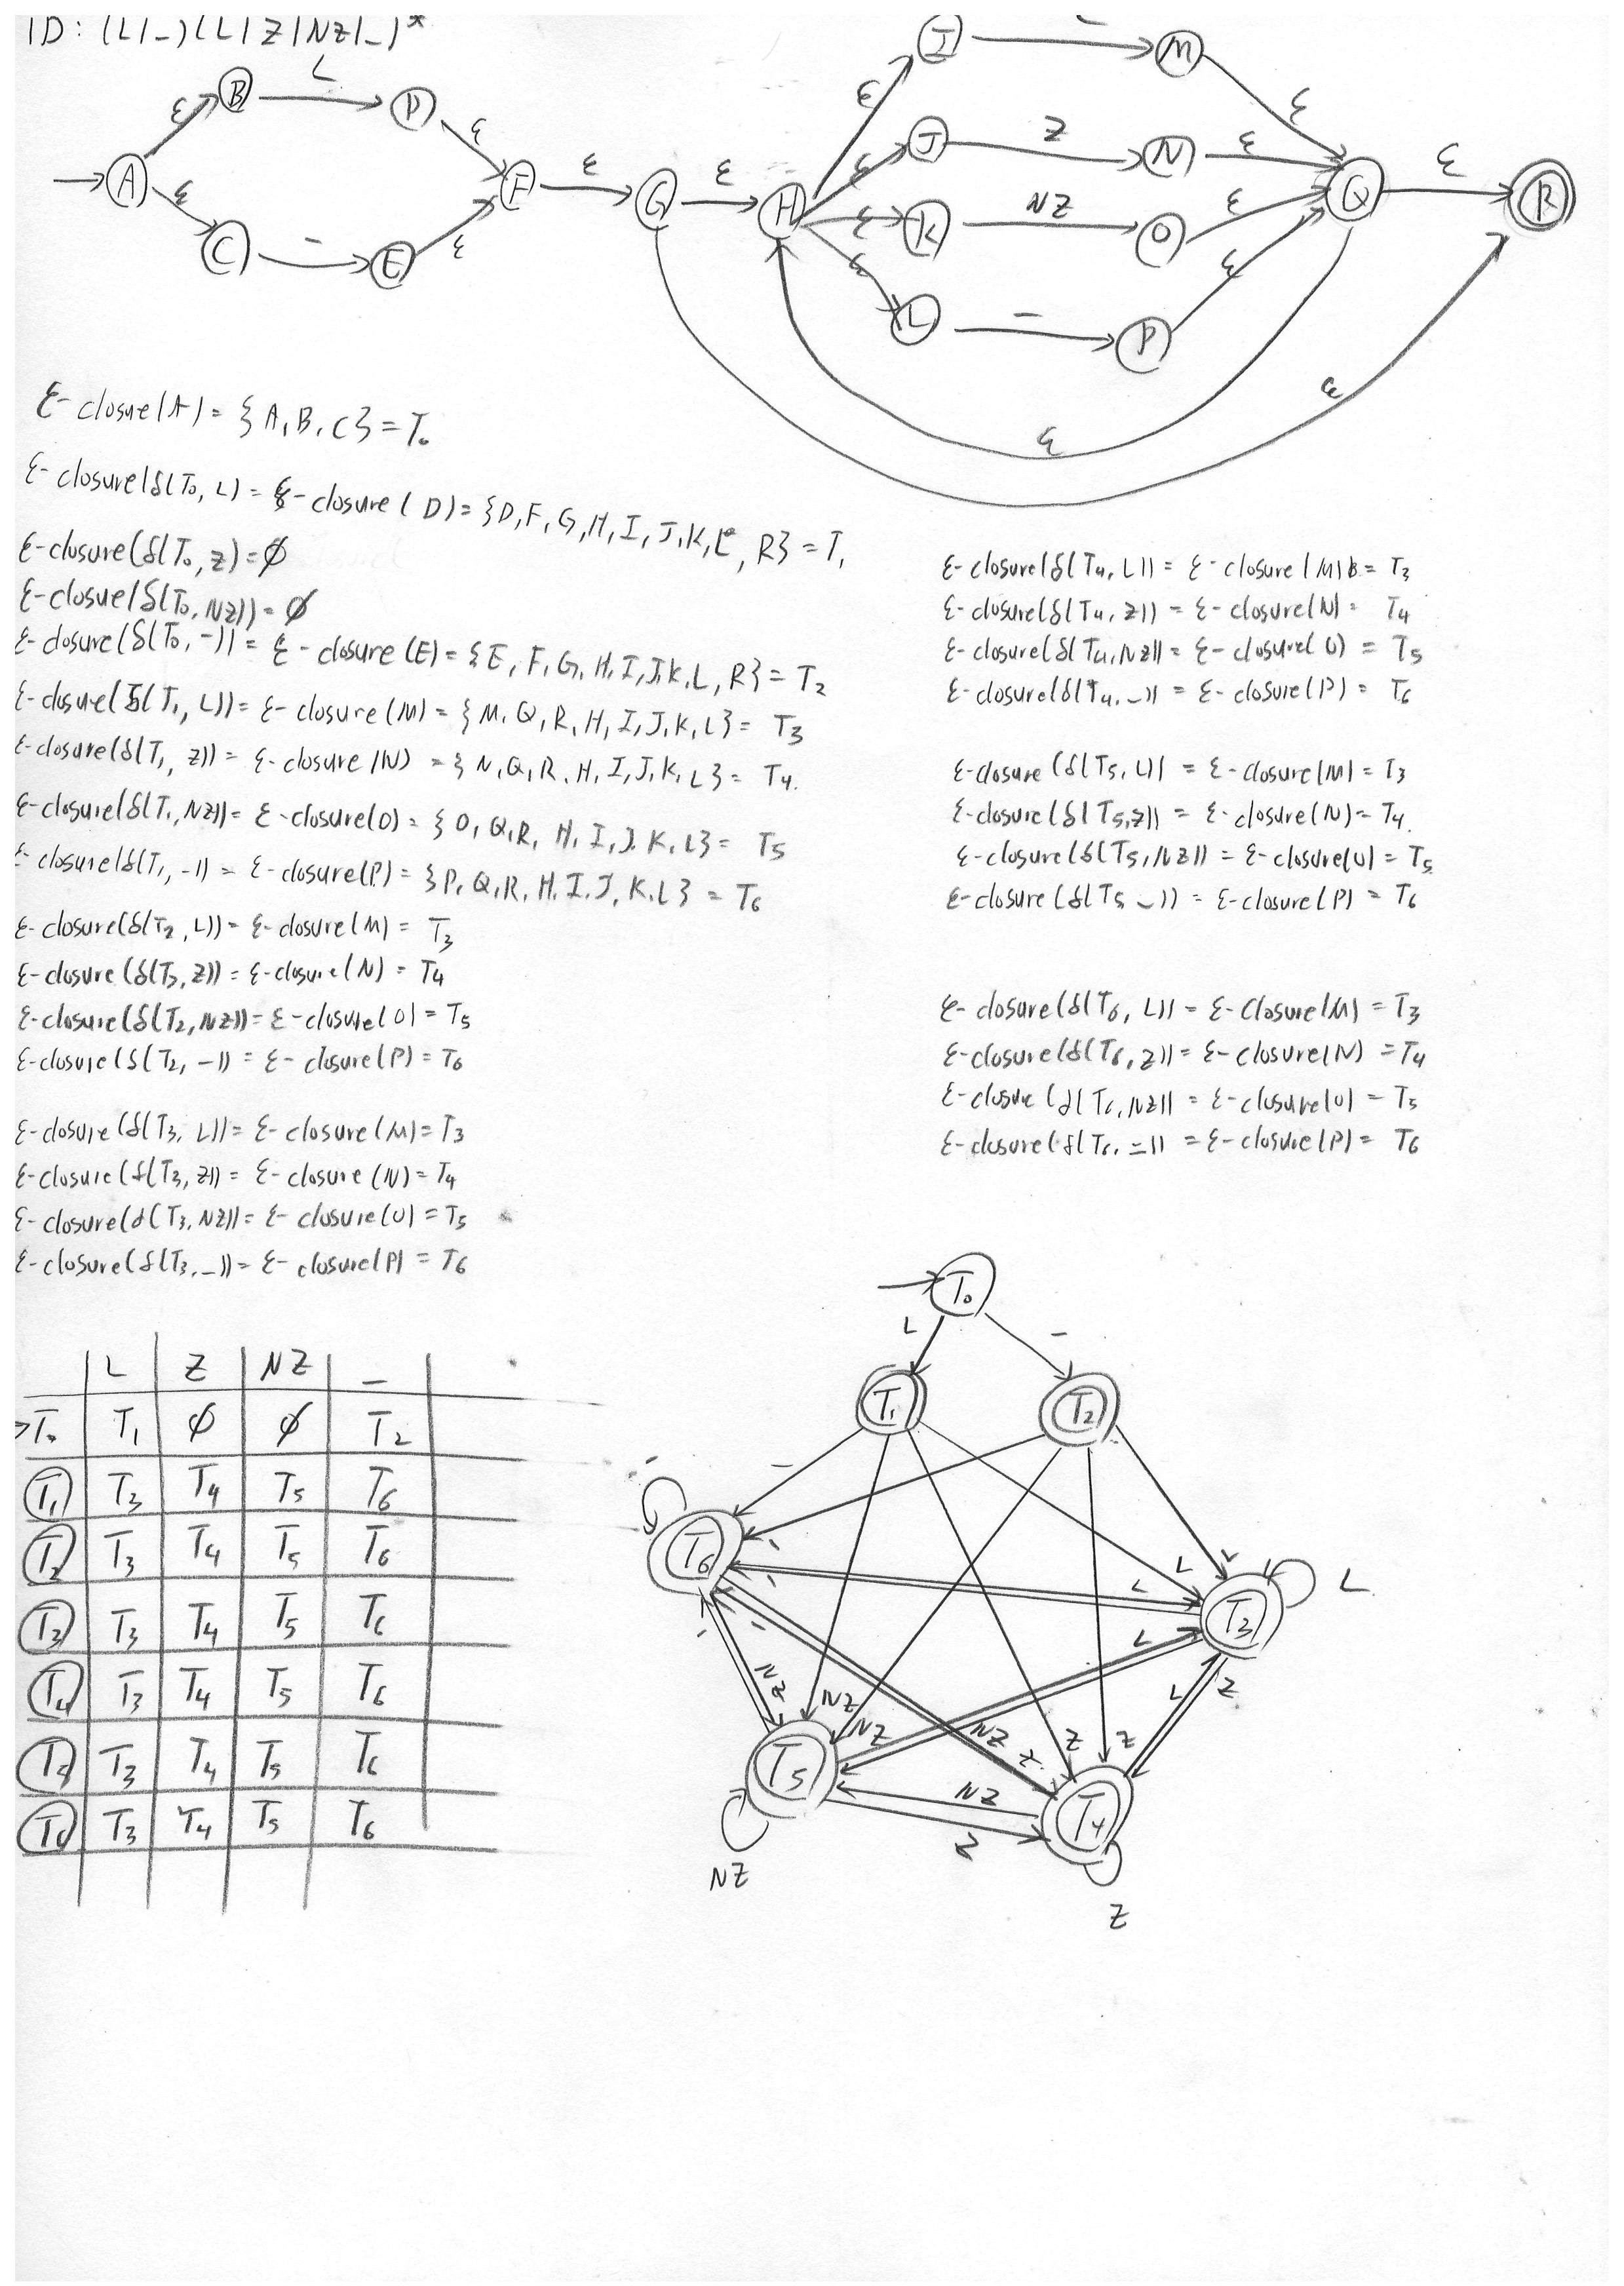 ID: (L|_)(L|Z|NZ|_)*
ε B L D ε
A ε C _ E ε F ε G ε H
ε I _ M ε
ε J Z N ε Q ε R
ε K NZ O ε
ε L _ P ε
ε
ε
ε-closure(A) = {A, B, C} = T0
ε-closure(δ(T0, L) = ε-closure(D) = {D, F, G, H, I, J, K, L, R} = T1
ε-closure(δ(T0, Z) = ∅
ε-closure(δ(T0, NZ)) = ∅
ε-closure(δ(T0, -)) = ε-closure(E) = {E, F, G, H, I, J, K, L, R} = T2
ε-closure(δ(T1, L)) = ε-closure(M) = {M, Q, R, H, I, J, K, L} = T3
ε-closure(δ(T1, Z)) = ε-closure(N) = {N, Q, R, H, I, J, K, L} = T4
ε-closure(δ(T1, NZ)) = ε-closure(O) = {O, Q, R, H, I, J, K, L} = T5
ε-closure(δ(T1, -)) = ε-closure(P) = {P, Q, R, H, I, J, K, L} = T6
ε-closure(δ(T2, L)) = ε-closure(M) = T3
ε-closure(δ(T3, Z)) = ε-closure(N) = T4
ε-closure(δ(T2, NZ)) = ε-closure(O) = T5
ε-closure(δ(T2, -)) = ε-closure(P) = T6
ε-closure(δ(T3, L)) = ε-closure(M) = T3
ε-closure(δ(T3, Z)) = ε-closure(N) = T4
ε-closure(δ(T3, NZ)) = ε-closure(O) = T5
ε-closure(δ(T3, _)) = ε-closure(P) = T6
ε-closure(δ(T4, L)) = ε-closure(M) = T3
ε-closure(δ(T4, Z)) = ε-closure(N) = T4
ε-closure(δ(T4, NZ)) = ε-closure(O) = T5
ε-closure(δ(T4, _)) = ε-closure(P) = T6
ε-closure(δ(T5, L)) = ε-closure(M) = T3
ε-closure(δ(T5, Z)) = ε-closure(N) = T4
ε-closure(δ(T5, NZ)) = ε-closure(O) = T5
ε-closure(δ(T5 _)) = ε-closure(P) = T6
ε-closure(δ(T6, L)) = ε-closure(M) = T3
ε-closure(δ(T6, Z)) = ε-closure(N) = T4
ε-closure(δ(T6, NZ)) = ε-closure(O) = T5
ε-closure(δ(T6, _)) = ε-closure(P) = T6
L Z NZ _
T0 T1 ∅ ∅ T2
T1 T3 T4 T5 T6
T2 T3 T4 T5 T6
T3 T3 T4 T5 T6
T4 T3 T4 T5 T6
T5 T3 T4 T5 T6
T6 T3 T4 T5 T6
T0
L -
T1 T2
- -
T6 - L L L T3 L
- - - L
NZ NZ NZ NZ Z Z Z L Z
T5 NZ T4
Z
NZ
Z